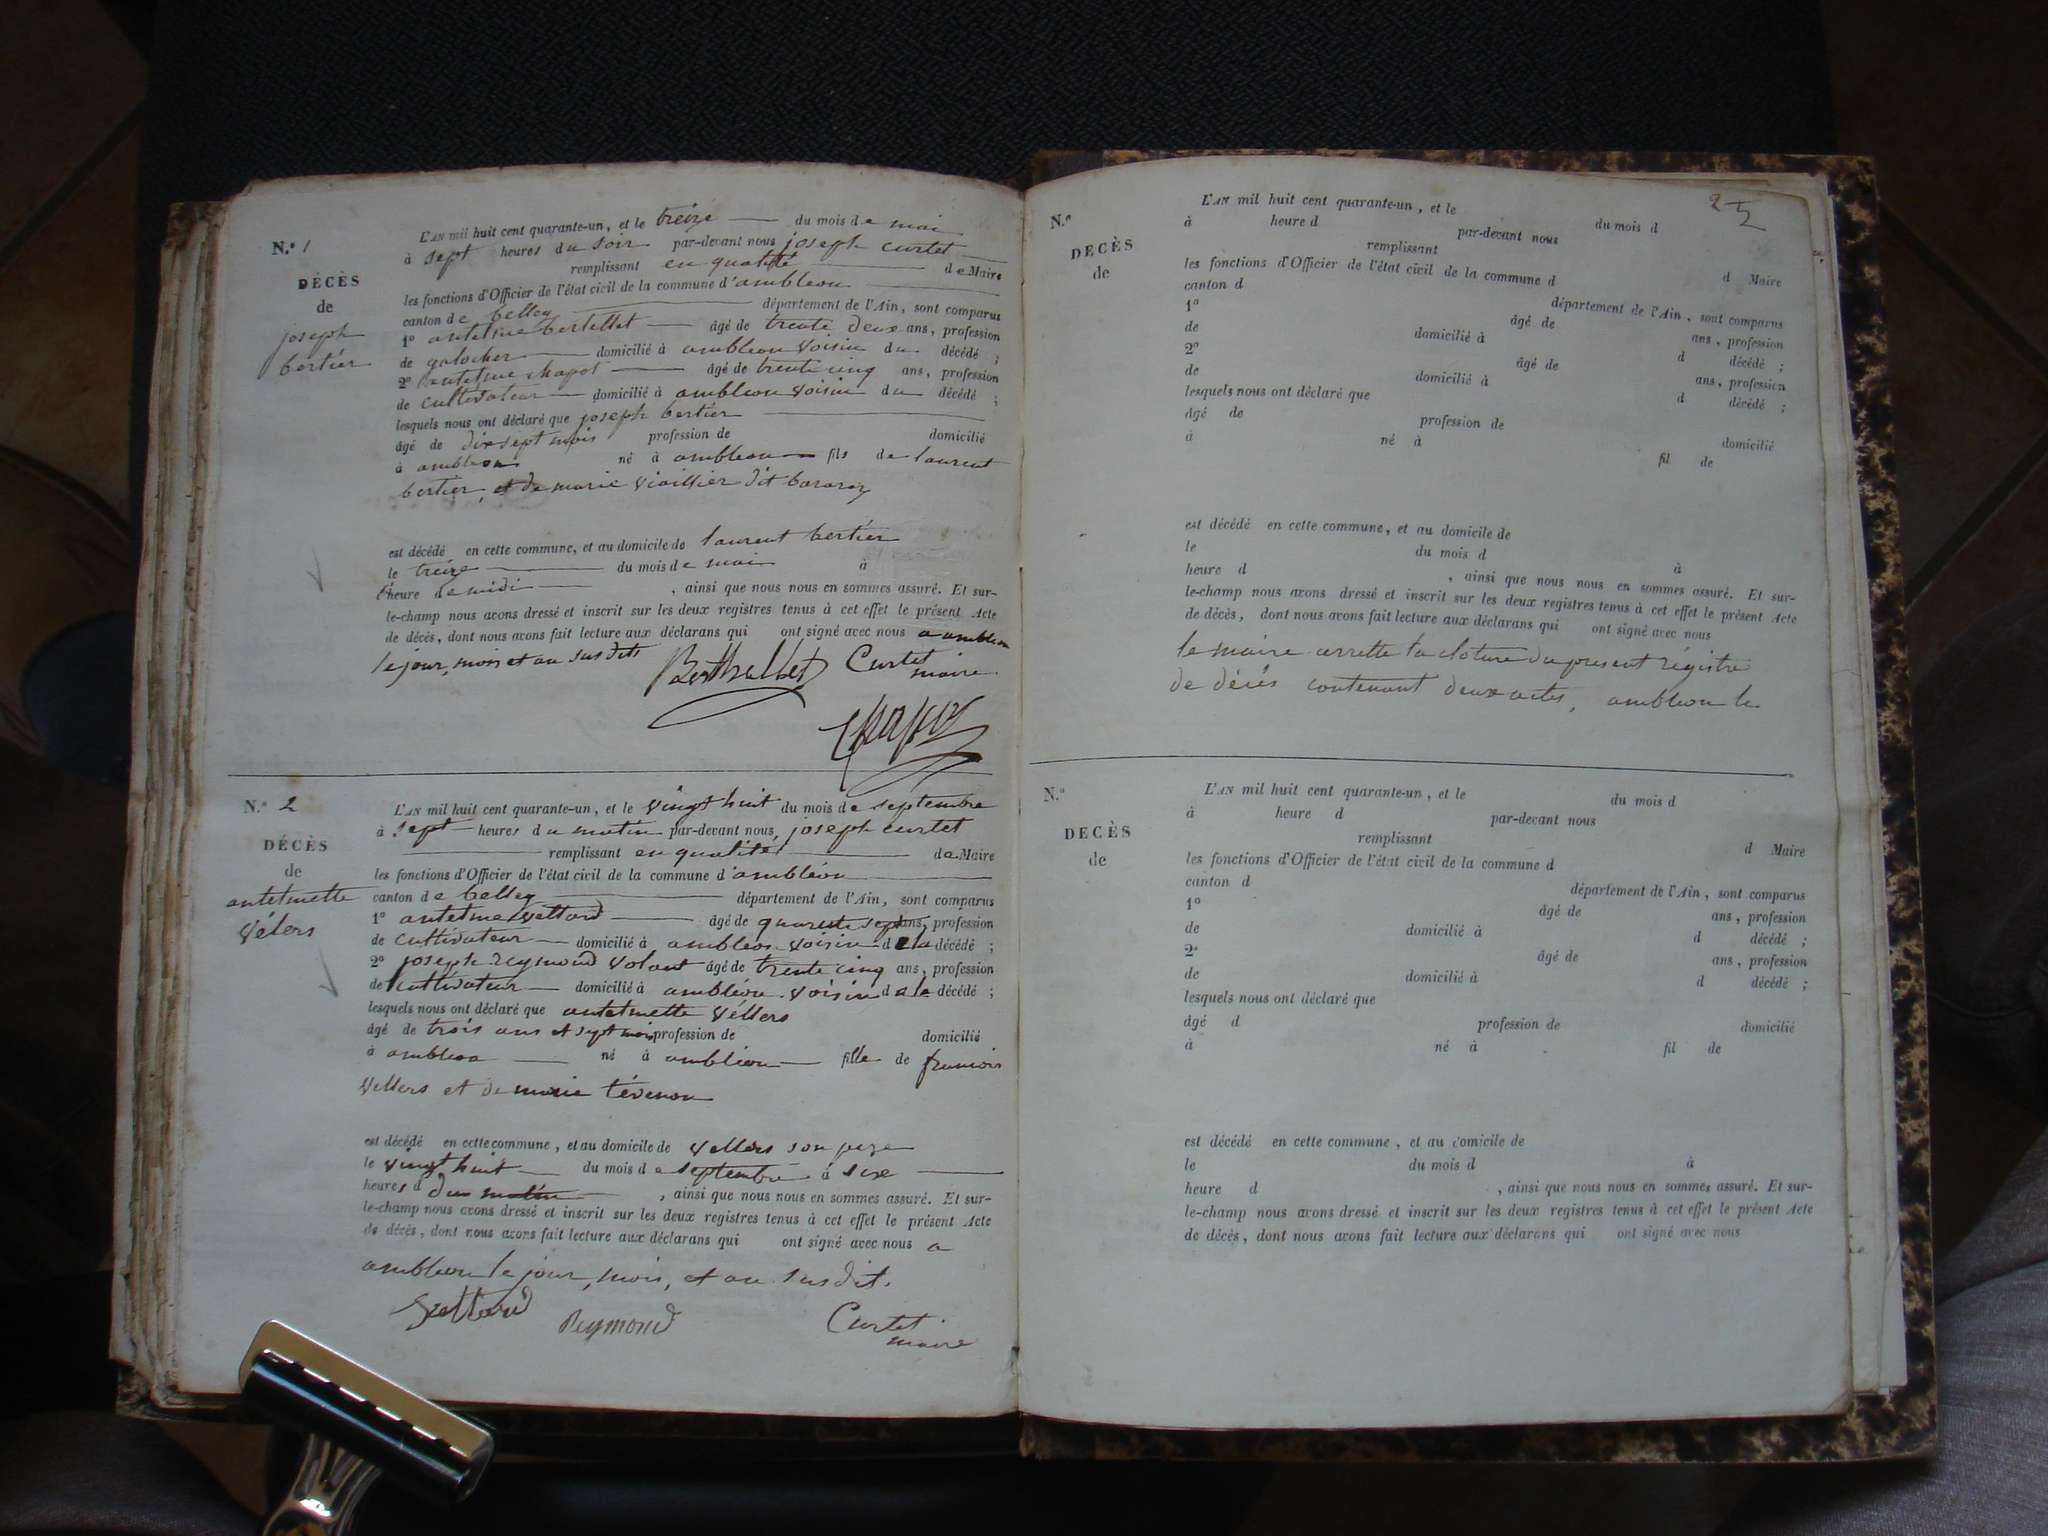 N.º 1
DÉCÈS
de
joseph
bertier
L'AN mil huit cent quarante-un, et le treize du mois de mai
à sept heures du soir par-devant nous joseph curtet
remplissant en qualité de Maire
les fonctions d'Officier de l'état civil de la commune d'ambleon
canton de belley département de l'Ain, sont comparus
1º antelme bertellet âgé de trente deux ans, profession
de galocher domicilié à ambleon voisin du décédé ;
2º antelme chapot âgé de trente cinq ans, profession
de cultivateur domicilié à ambleon voisin du décédé ;
lesquels nous ont déclaré que joseph bertier
âgé de dix sept mois profession de domicilié
à ambleon né à ambleon fils de laurent
bertier, et de marie viallier dit
est décédé en cette commune, et au domicile de laurent bertier
le treize du mois de mai à
l'heure de midi , ainsi que nous nous en sommes assuré. Et sur-
le-champ nous avons dressé et inscrit sur les deux registres tenus à cet effet le présent Acte
de décès, dont nous avons fait lecture aux déclarans qui ont signé avec nous a ambleon
le jour, mois et an susdits
Berthellet Curtet
maire
Chapot
N.º 2
DÉCÈS
de
antelmette
vélers
L'AN mil huit cent quarante-un, et le vingt huit du mois de septembre
à sept heures du matin par-devant nous, joseph curtet
remplissant en qualité de Maire
les fonctions d'Officier de l'état civil de la commune d'ambléon
canton de belley département de l'Ain, sont comparus
1º antelme vettard âgé de quarente sept ans, profession
de cultivateur domicilié à ambleon voisin de la décédé ;
2º joseph reymond volant âgé de trente cinq ans, profession
de cultivateur domicilié à ambléon voisin de la décédé ;
lesquels nous ont déclaré que antelmette véllers
âgé de trois ans et sept mois profession de domicilié
à ambleon né à ambléon fille de francois
vellers et de marie tévenon
est décédé en cette commune, et au domicile de vellers son pere
le vingt huit du mois de septembre à six
heures d du matin , ainsi que nous nous en sommes assuré. Et sur-
le-champ nous avons dressé et inscrit sur les deux registres tenus à cet effet le présent Acte
de décès, dont nous avons fait lecture aux déclarans qui ont signé avec nous a
ambleon le jour, mois, et an susdit.
Vettard Reymond Curtet
maire
25
N.º
DECÈS
de
L'AN mil huit cent quarante-un, et le du mois d
à heure d par-devant nous
remplissant d Maire
les fonctions d'Officier de l'état civil de la commune d
canton d département de l'Ain, sont comparus
1º âgé de ans, profession
de domicilié à d décédé ;
2º âgé de ans, profession
de domicilié à d décédé ;
lesquels nous ont déclaré que
âgé de profession de domicilié
à né à fil de
est décédé en cette commune, et au domicile de
le du mois d à
heure d , ainsi que nous nous en sommes assuré. Et sur-
le-champ nous avons dressé et inscrit sur les deux registres tenus à cet effet le présent Acte
de décès, dont nous avons fait lecture aux déclarans qui ont signé avec nous
le maire arrette la cloture du present régistre
de décés contenant deux actes, ambleon le
N.º
DECÈS
de
L'AN mil huit cent quarante-un, et le du mois d
à heure d par-devant nous
remplissant d Maire
les fonctions d'Officier de l'état civil de la commune d
canton d département de l'Ain, sont comparus
1º âgé de ans, profession
de domicilié à d décédé ;
2º âgé de ans, profession
de domicilié à d décédé ;
lesquels nous ont déclaré que
âgé d profession de domicilié
à né à fil de
est décédé en cette commune, et au domicile de
le du mois d à
heure d , ainsi que nous nous en sommes assuré. Et sur-
le-champ nous avons dressé et inscrit sur les deux registres tenus à cet effet le présent Acte
de décès, dont nous avons fait lecture aux déclarans qui ont signé avec nous